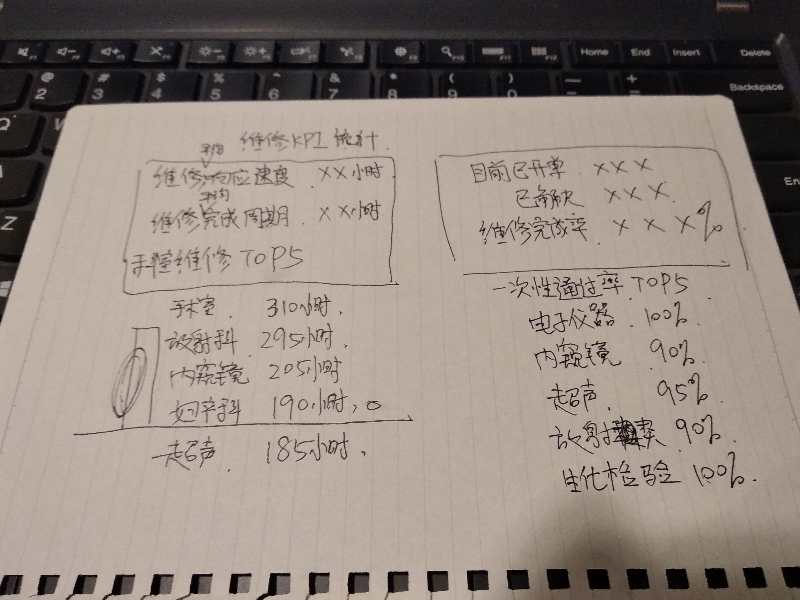 @
2
#
3
$
4
%
5
^
6
&
7
*
8
(
9
)
0
Home
End
Insert
Delete
Backspace
Q
Z
维修KPI统计
平均
维修响应速度 XX小时
平均
维修完成周期 XX小时
维修TOP5
手术室 310小时,
放射科 295小时,
内窥镜 205小时
妇产科 190小时,。
超声 185小时,
目前已开单 XXX
已解决 XXX
维修完成率 XXX%
一次性通过率TOP5
电子仪器 100%
内窥镜 90%
超声 95%
放射类 90%
生化检验 100%